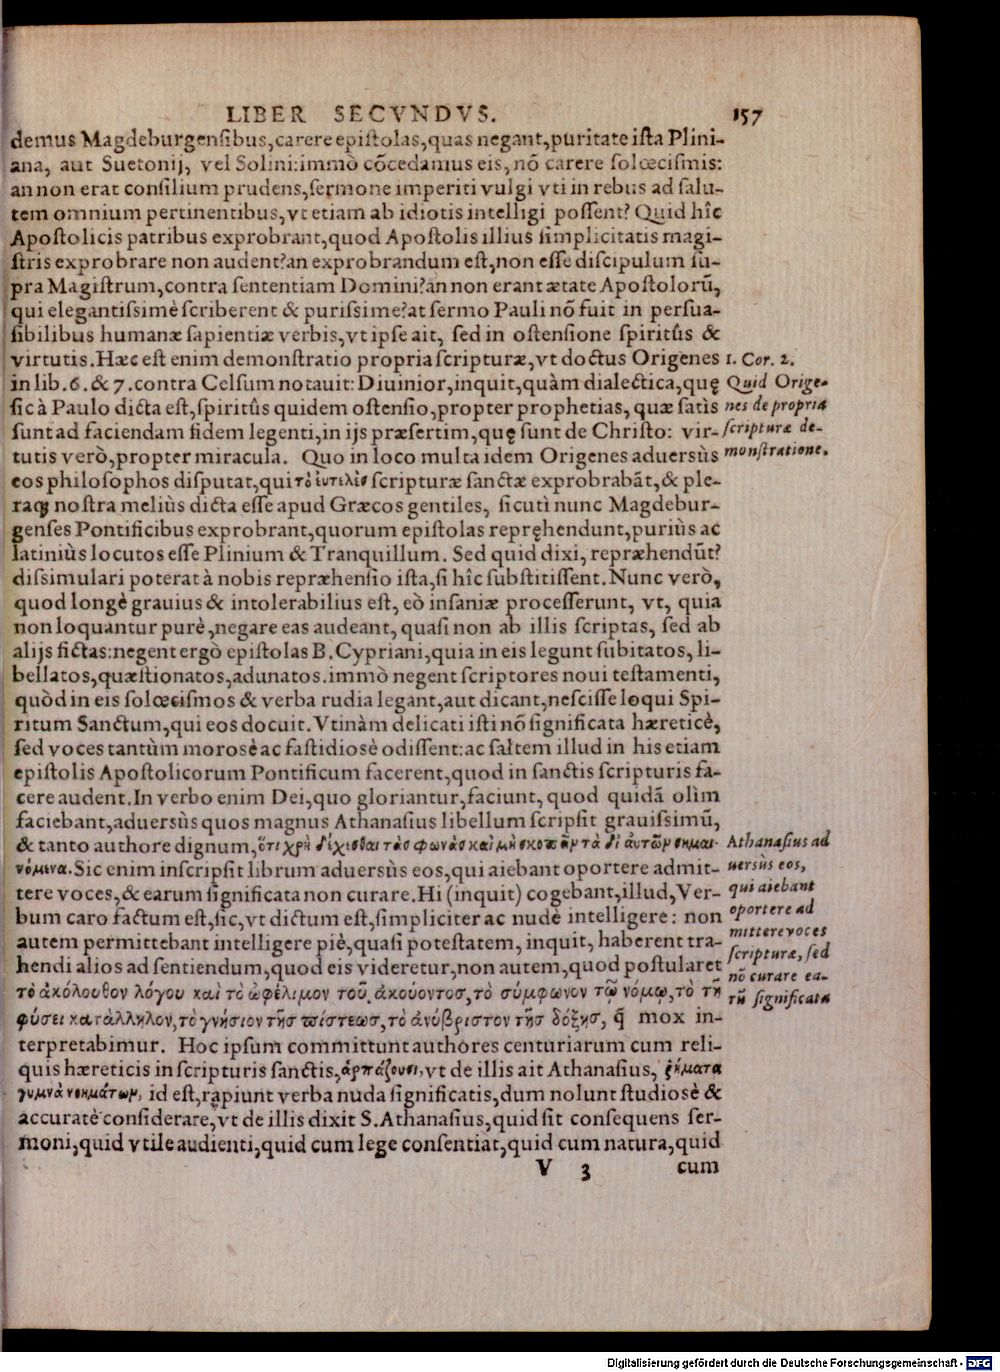 LIBER SECVNDVS. 157
demus Magdeburgensibus,carere epistolas,quas negant,puritate ista Plini-
ana, aut Suetonij, vel Solini:immò cõcedamus eis, nõ carere solœcismis:
an non erat consilium prudens,sermone imperiti vulgi vti in rebus ad salu-
tem omnium pertinentibus,vt etiam ab idiotis intelligi possent? Quid hîc
Apostolicis patribus exprobrant,quod Apostolis illius simplicitatis magi-
stris exprobrare non audent?an exprobrandum est,non esse discipulum su-
pra Magistrum,contra sententiam Domini?an non erant ætate Apostolorũ,
qui elegantissimè scriberent & purissime?at sermo Pauli nõ fuit in persua-
sibilibus humanæ sapientiæ verbis,vt ipse ait, sed in ostensione spiritûs &
virtutis.Hæc est enim demonstratio propria scripturæ,vt doctus Origenes
in lib.6.& 7.contra Celsum notauit:Diuinior,inquit,quàm dialectica,quę
sic à Paulo dicta est,spiritûs quidem ostensio,propter prophetias, quæ satìs
sunt ad faciendam fidem legenti,in ijs præsertim,quę sunt de Christo: vir-
tutis verò,propter miracula. Quo in loco multa idem Origenes aduersùs
eos philosophos disputat,qui τὸ ἐυτελὲσ scripturæ sanctæ exprobrabãt,& ple-
raq; nostra meliùs dicta esse apud Græcos gentiles, sicutì nunc Magdebur-
genses Pontificibus exprobrant,quorum epistolas repręhendunt,puriùs ac
latiniùs locutos esse Plinium & Tranquillum. Sed quid dixi, repræhendũt?
dissimulari poterat à nobis repræhensio ista,si hîc substitissent.Nunc verò,
quod longè grauius & intolerabilius est, eò insaniæ processerunt, vt, quia
non loquantur purè,negare eas audeant, quasi non ab illis scriptas, sed ab
alijs fictas:negent ergò epistolas B.Cypriani,quia in eis legunt subitatos, li-
bellatos,quæstionatos,adunatos.immò negent scriptores noui testamenti,
quòd in eis solœcismos & verba rudia legant,aut dicant,nescisse loqui Spi-
ritum Sanctum,qui eos docuit.Vtinàm delicati isti nõ significata hæreticè,
sed voces tantùm morosè ac fastidiosè odissent:ac saltem illud in his etiam
epistolis Apostolicorum Pontificum facerent,quod in sanctis scripturis fa-
cere audent.In verbo enim Dei,quo gloriantur,faciunt, quod quidã olìm
faciebant,aduersùs quos magnus Athanasius libellum scripsit grauissimũ,
& tanto authore dignum,ὅτι χρὴ δέχεσθαι τὰσ φωνὰσ καὶ μὴ σκοπεῖν τὰ δἰ αὐτῶν σημαι-
νόμενα.Sic enim inscripsit librum aduersùs eos,qui aiebant oportere admit-
tere voces,& earum significata non curare.Hi (inquit) cogebant,illud,Ver-
bum caro factum est,sic,vt dictum est,simpliciter ac nudè intelligere: non
autem permittebant intelligere piè,quasi potestatem, inquit, haberent tra-
hendi alios ad sentiendum,quod eis videretur,non autem,quod postularet
τὸ ἀκόλουθον λόγου καὶ τὸ ὠφέλιμον τοῦ ἀκούοντοσ,τὸ σύμφωνον τῷ νόμῳ,τὸ τῇ
φύσει κατὰλληλον,τὸ γνήσιον τῆσ πίστεωσ,τὸ ἀνύβριστον τῆσ δόξησ, q̃ mox in-
terpretabimur. Hoc ipsum committunt authores centuriarum cum reli-
quis hæreticis in scripturis sanctis,ἁρπάζουσι,vt de illis ait Athanasius, ῥήματα
γυμνὰ νοημάτων, id est,rapiunt verba nuda significatis,dum nolunt studiosè &
accuratè considerare,vt de illis dixit S.Athanasius,quid sit consequens ser-
moni,quid vtile audienti,quid cum lege consentiat,quid cum natura,quid
V 3 cum
1. Cor. 2.
Quid Orige-
nes de propria
scripturæ de-
monstratione.
Athanasius ad
uersùs eos,
qui aiebant
oportere ad
mittere voces
scripturæ, sed
nõ curare ea-
rũ significata
Digitalisierung gefördert durch die Deutsche Forschungsgemeinschaft - DFG